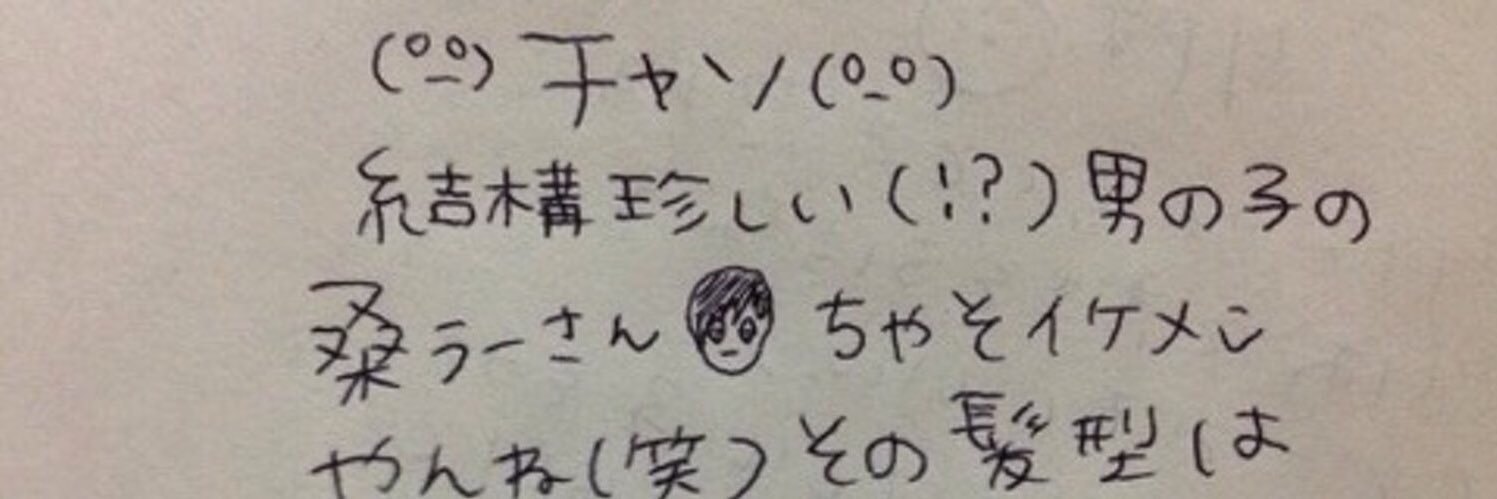 (°_°) チャソ (°_°)
結構珍しい(!?)男の子の
桑らーさん ちゃそイケメン
やんね(笑)その髪型は